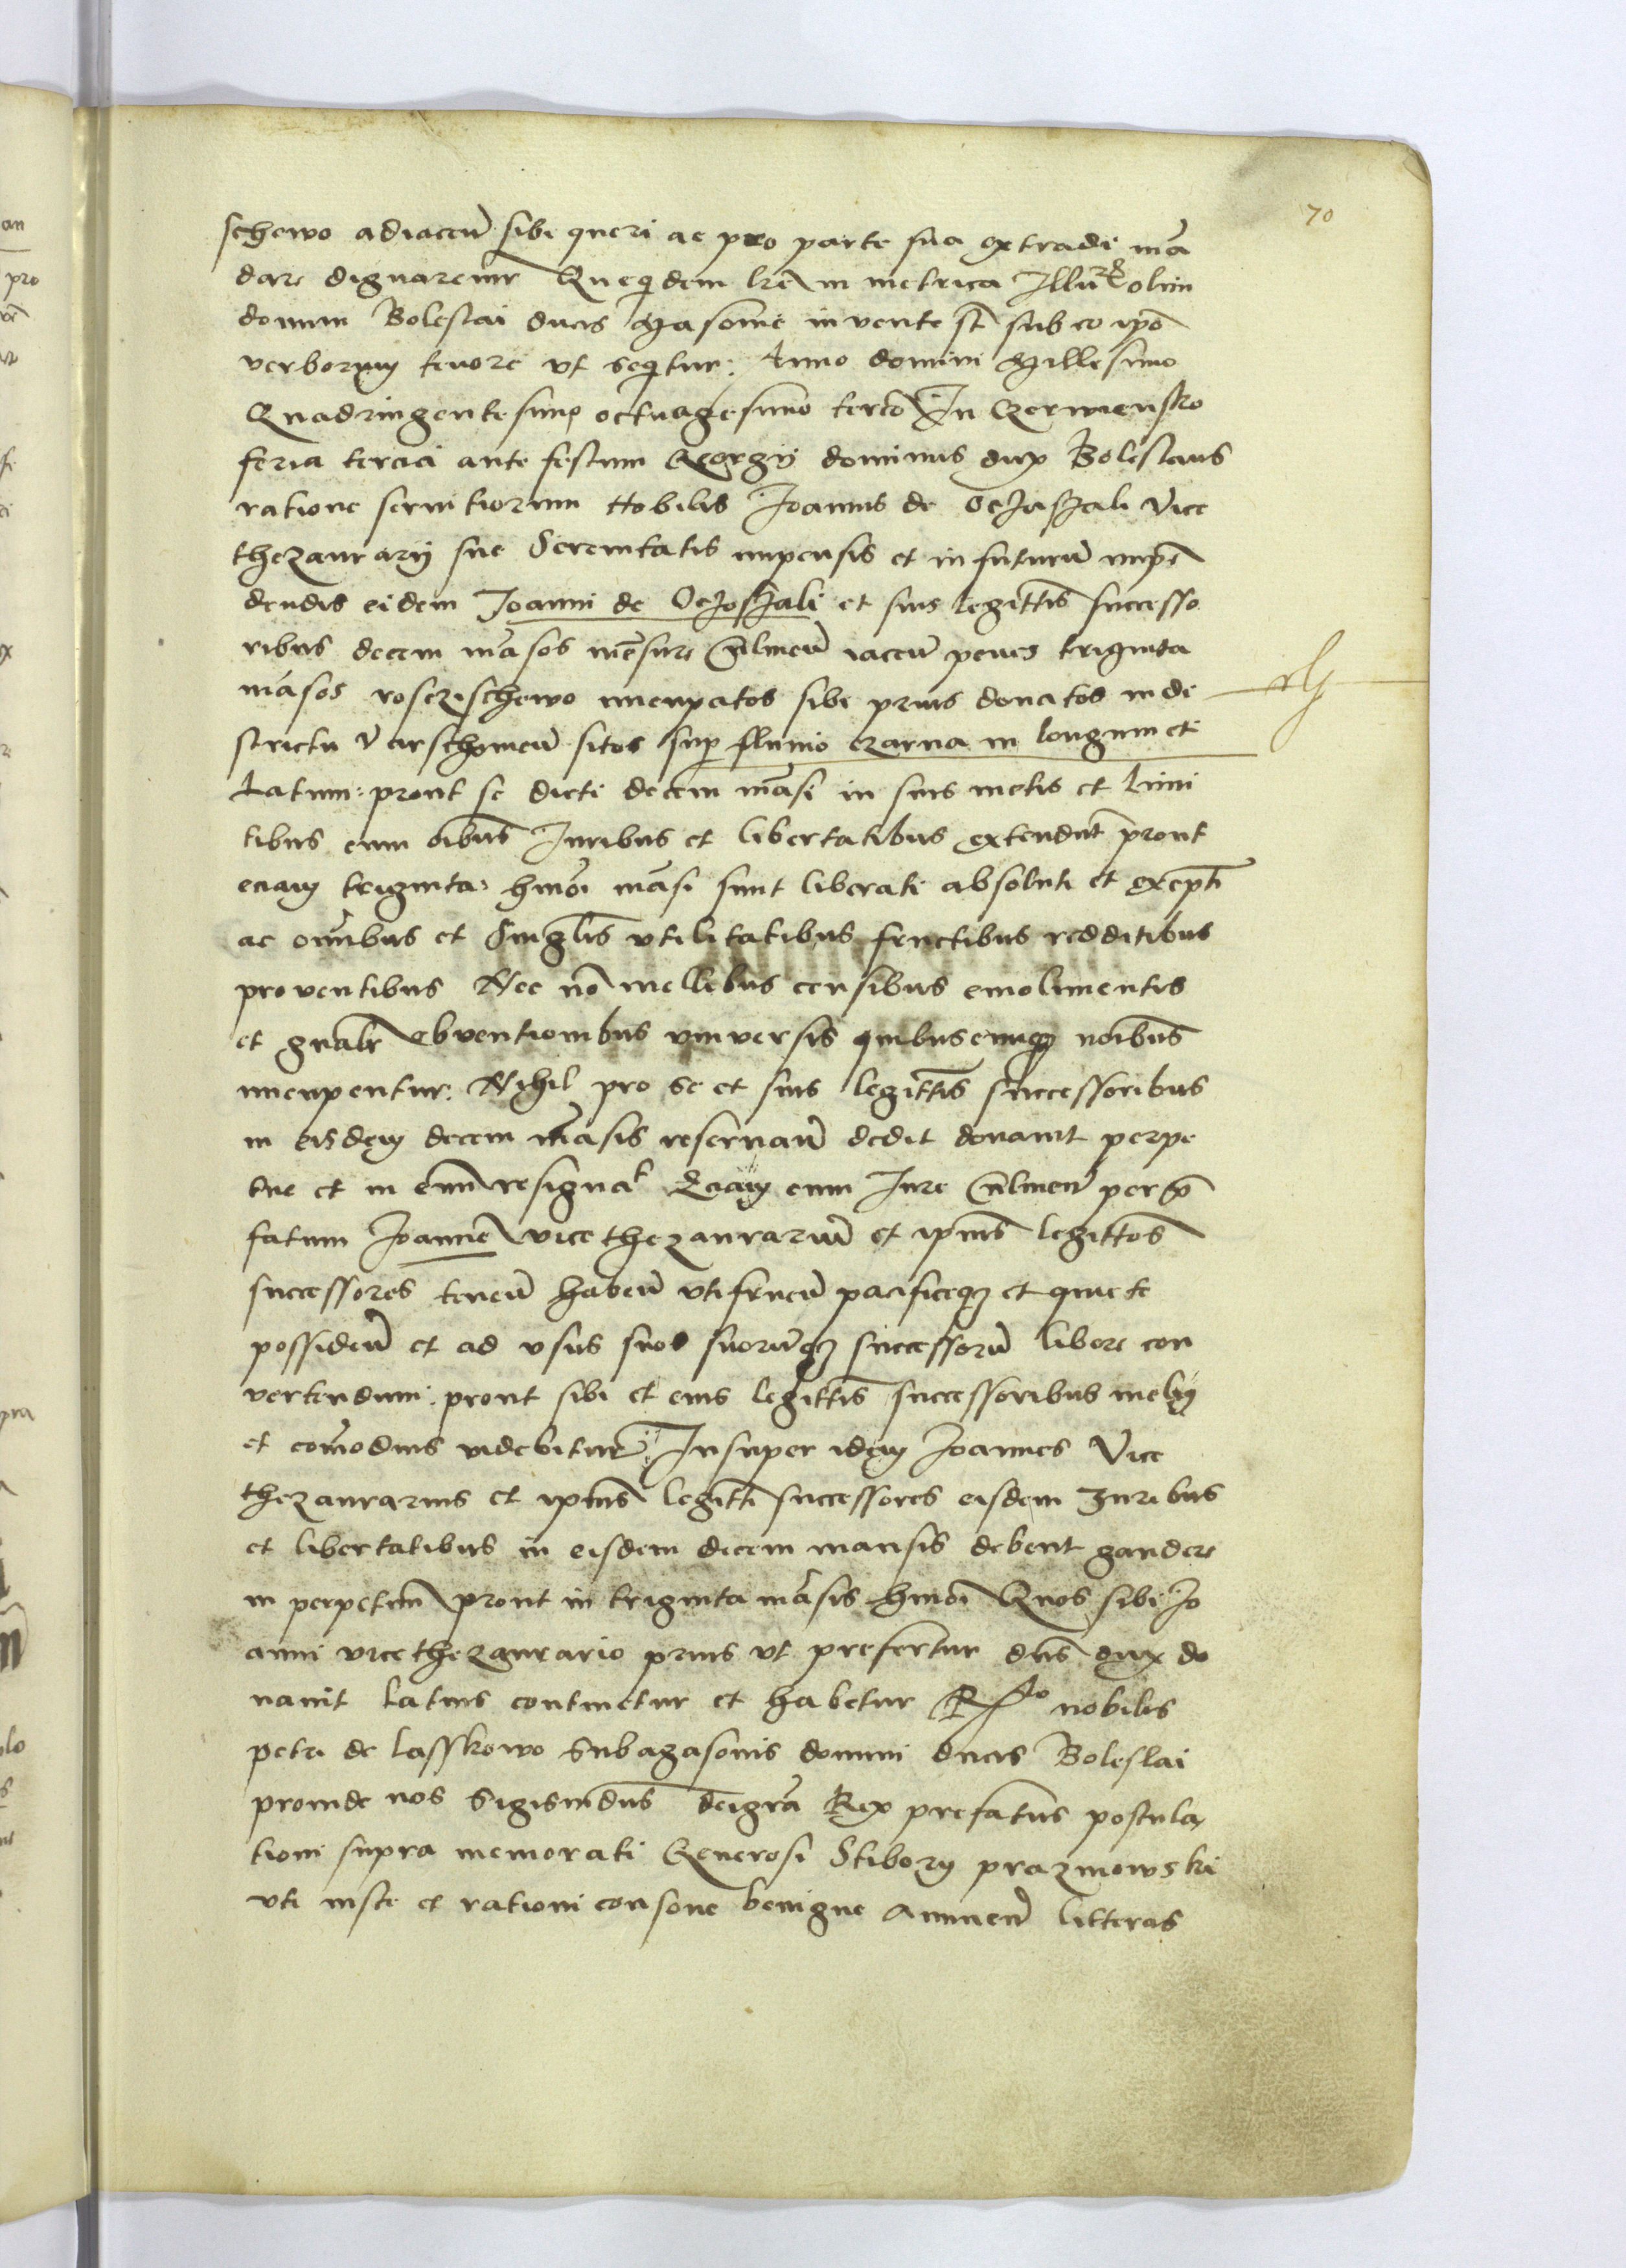 70
schewo adiaceñ sibi queri ac pro parte sua extradi mā
dare dignaremur Quequidem lrē in metrica Illuͬ olim
domini Boleslai ducis Masovie invente st̄ sub eo ipō
verborum tenore ut sequitur: Anno domini Millesimo
Quadringentesimo octuagesimo tercio In Czerwiensko
feria tercia ante festum Georgij dominus dux Boleslaus
ratione servitiorum Nobilis Joannis de Vice
thezaurarij sue Serenitatis impensis et in futurū impē
dendis eidem Joanni de et suis legittīs successo
ribus decem māsos mēsure Culmeñ iaceñ penes triginta
māsos rosczischewo nuncupatos sibi prius donatos in di
strictu Varschovieñ sitos sup fluvio czarna in longum et
Latum: prout se dicti decem māsi in suis metis et limi
tibus cum oībus Iuribus et libertatibus extendūt prout
eciam triginta hmōi māsi sunt liberati absoluti et exēpti
ac omnibus et Singlīs utilitatibus fructibus redditibus
proventibus Nec nō mellibus censibus emolimentis
et gnālr obventionibus universis quibuscumqz noībus
nuncupentur. Nihil pro se et suis legittīs successoribus
in eisdem decem māsis reservañ dedit donavit perpe
tue et in evum resignat Eciam cum Iure Culmeñ per p̄
fatum Joannē vicethezaurariū et ipīus legittōs
successores teneñ habeñ utifrueñ pacificeqz et quiete
possideñ et ad usus suos suorūqz successorū libere con
vertendum: prout sibi et eius legittīs successoribus melius
et comōdius videbitur. Insuper idem Joannes Vice
thezaurarius et ipīus legittī successores eisdem Iuribus
et libertatibus in eisdem decem mansis debent gaudere
in perpetuū prout in triginta māsis hmōi Quos sibi Jo
anni vicethezaurario prius ut prefertur dn̄s dux do
navit Latius continetur et habetur nobilis
petri de lasskowo Subagasonis domini ducis Boleslai
proinde nos Sigismūdus deigrā Rex prefatus postula
tioni supra memorati Generosi Stibory prazmowski
uti iuste et rationi consone benigne Annueñ litteras